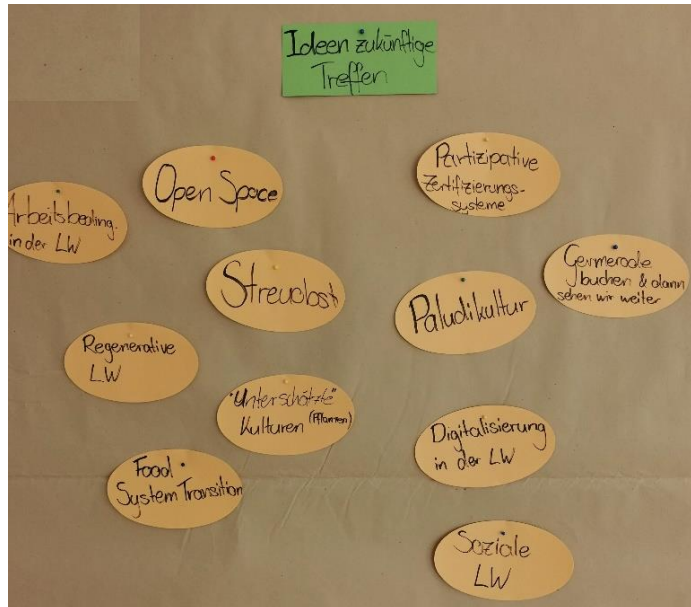 Ideen zukünftige
Treffen
Open Space
Partizipative
Zertifizierungs-
systeme
Arbeitsbeding.
in der LW
Streuobst
Germerode
buchen & dann
sehen wir weiter
Paludikultur
Regenerative
LW
"Unterschätzte"
Kulturen (Pflanzen)
Digitalisierung
in der LW
Food
System Transition
Soziale
LW